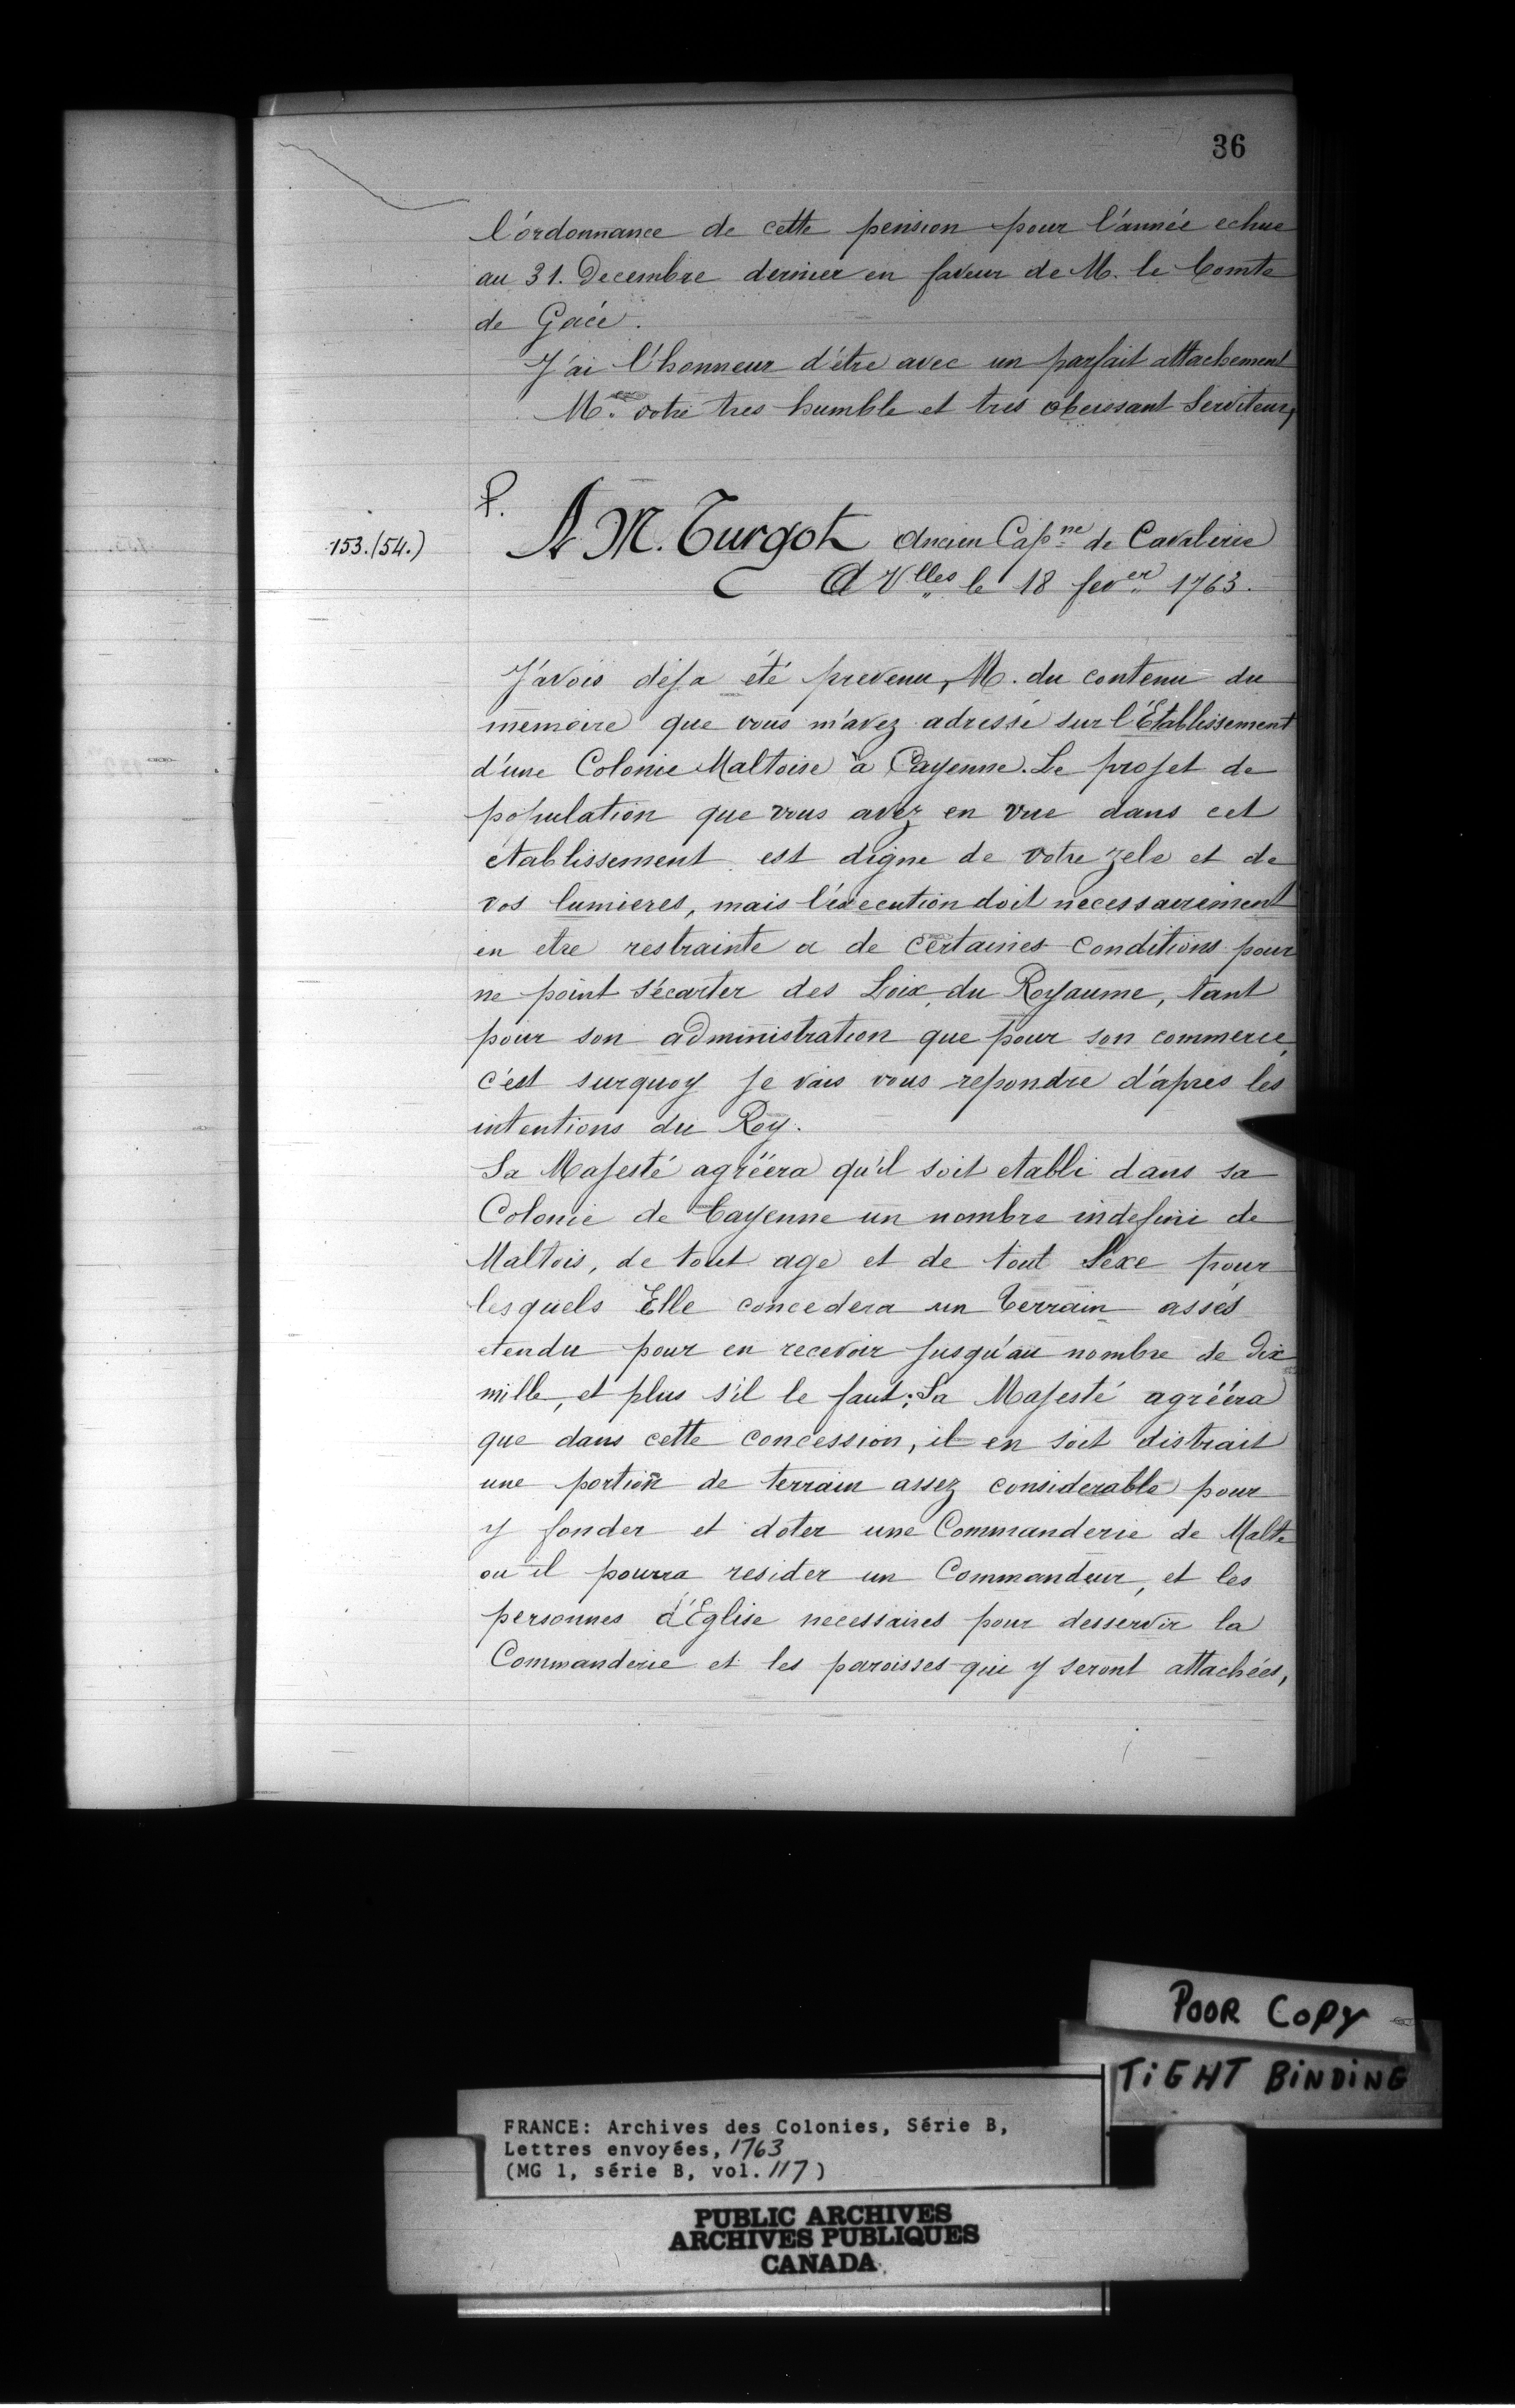 36
l'ordonnance de cette pension pour l'année echue
au 31. Decembre dernier en faveur de M. le Comte
de Gacé.
J'ai l'honneur d'être avec un parfait attachement
M. votre tres humble et tres obeissant Serviteur,
P.
153.(54.)
A M. Turgot Ancien Cap.ne de Cavalerie
A V.lles le 18 fev.er 1763.
J'avois déja été prevenu, M. du contenu du
memoire que vous m'avez adressé sur l'Etablissement
d'une Colonie Maltoise à Cayenne. Le projet de
population que vous avez en vue dans cet
etablissement est digne de votre zele et de
vos lumieres, mais l'éxecution doit necessairement
en etre restrainte a de certaines conditions pour
ne point s'écarter des Loix du Royaume, tant
pour son administration que pour son commerce,
c'est surquoy je vais vous repondre d'après les
intentions du Roy.
Sa Majesté agrééra qu'il soit etabli dans sa
Colonie de Cayenne un nombre indefini de
Maltois, de tout age et de tout Sexe pour
lesquels Elle concedera un terrain assés
etendu pour en recevoir jusqu'au nombre de Dix
mille, et plus s'il le faut; Sa Majesté agrééra
que dans cette concession, il en soit distrait
une portion de terrain assez considerable pour
y fonder et doter une Commanderie de Malte
ou il pourra resider un Commandeur, et les
personnes d'Eglise necessaires pour desservir la
Commanderie et les paroisses qui y seront attachées,
POOR COPY
TIGHT BINDING
FRANCE: Archives des Colonies, Série B,
Lettres envoyées, 1763
(MG 1, série B, vol. 117)
PUBLIC ARCHIVES
ARCHIVES PUBLIQUES
CANADA